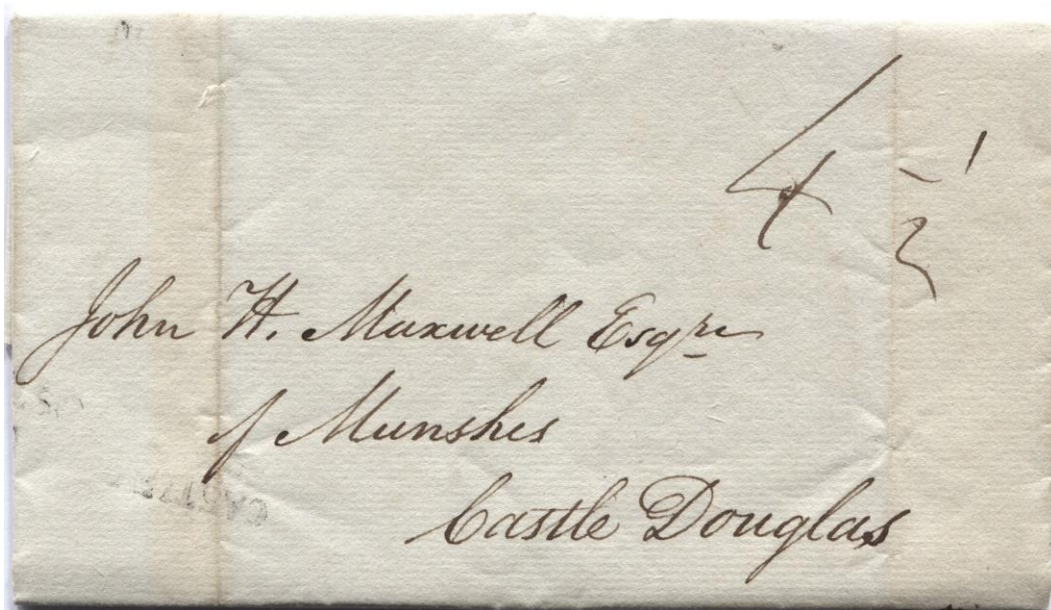 4 1/2
John H. Maxwell Esqre
of Munshes
Castle Douglas